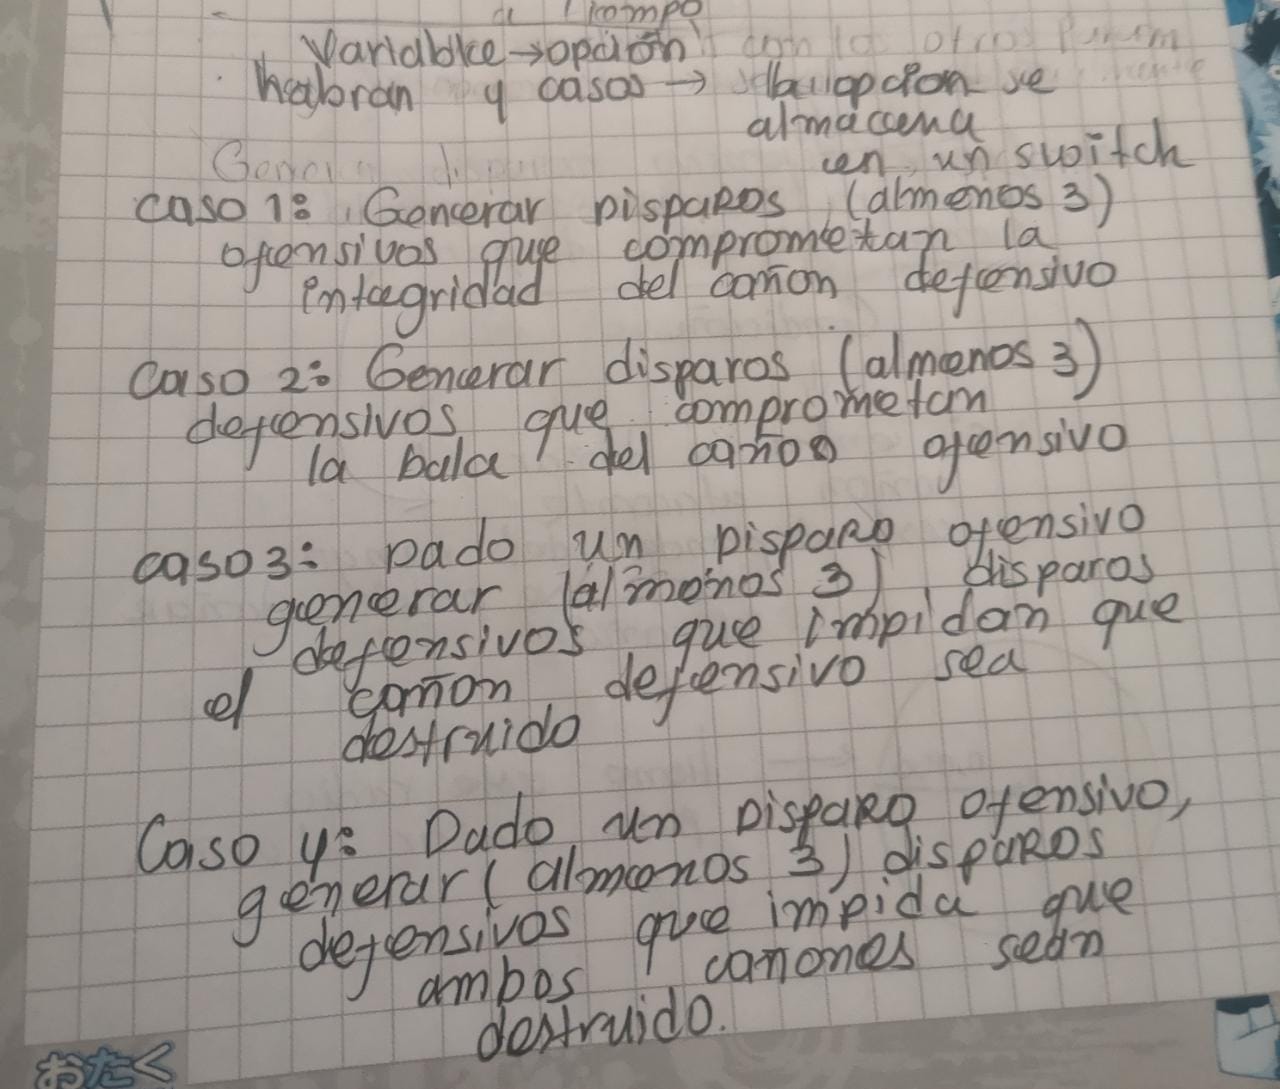 tiempo
Variable → opción
habrán 4 casos → la opcion se
almacena
en un switch
caso 1: Generar Disparos (almenos 3)
ofensivos que comprometan la
integridad del cañon defensivo
Caso 2: Generar disparos (almenos 3)
defensivos que comprometan
la bala del cañon ofensivo
caso 3: Dado un Disparo ofensivo
generar (almenos 3) disparos
defensivos que impidan que
el cañon defensivo sea
destruido
Caso 4: Dado un Disparo Ofensivo,
generar (almenos 3) disparos
defensivos que impida que
ambos cañones sean
destruido.
おたく